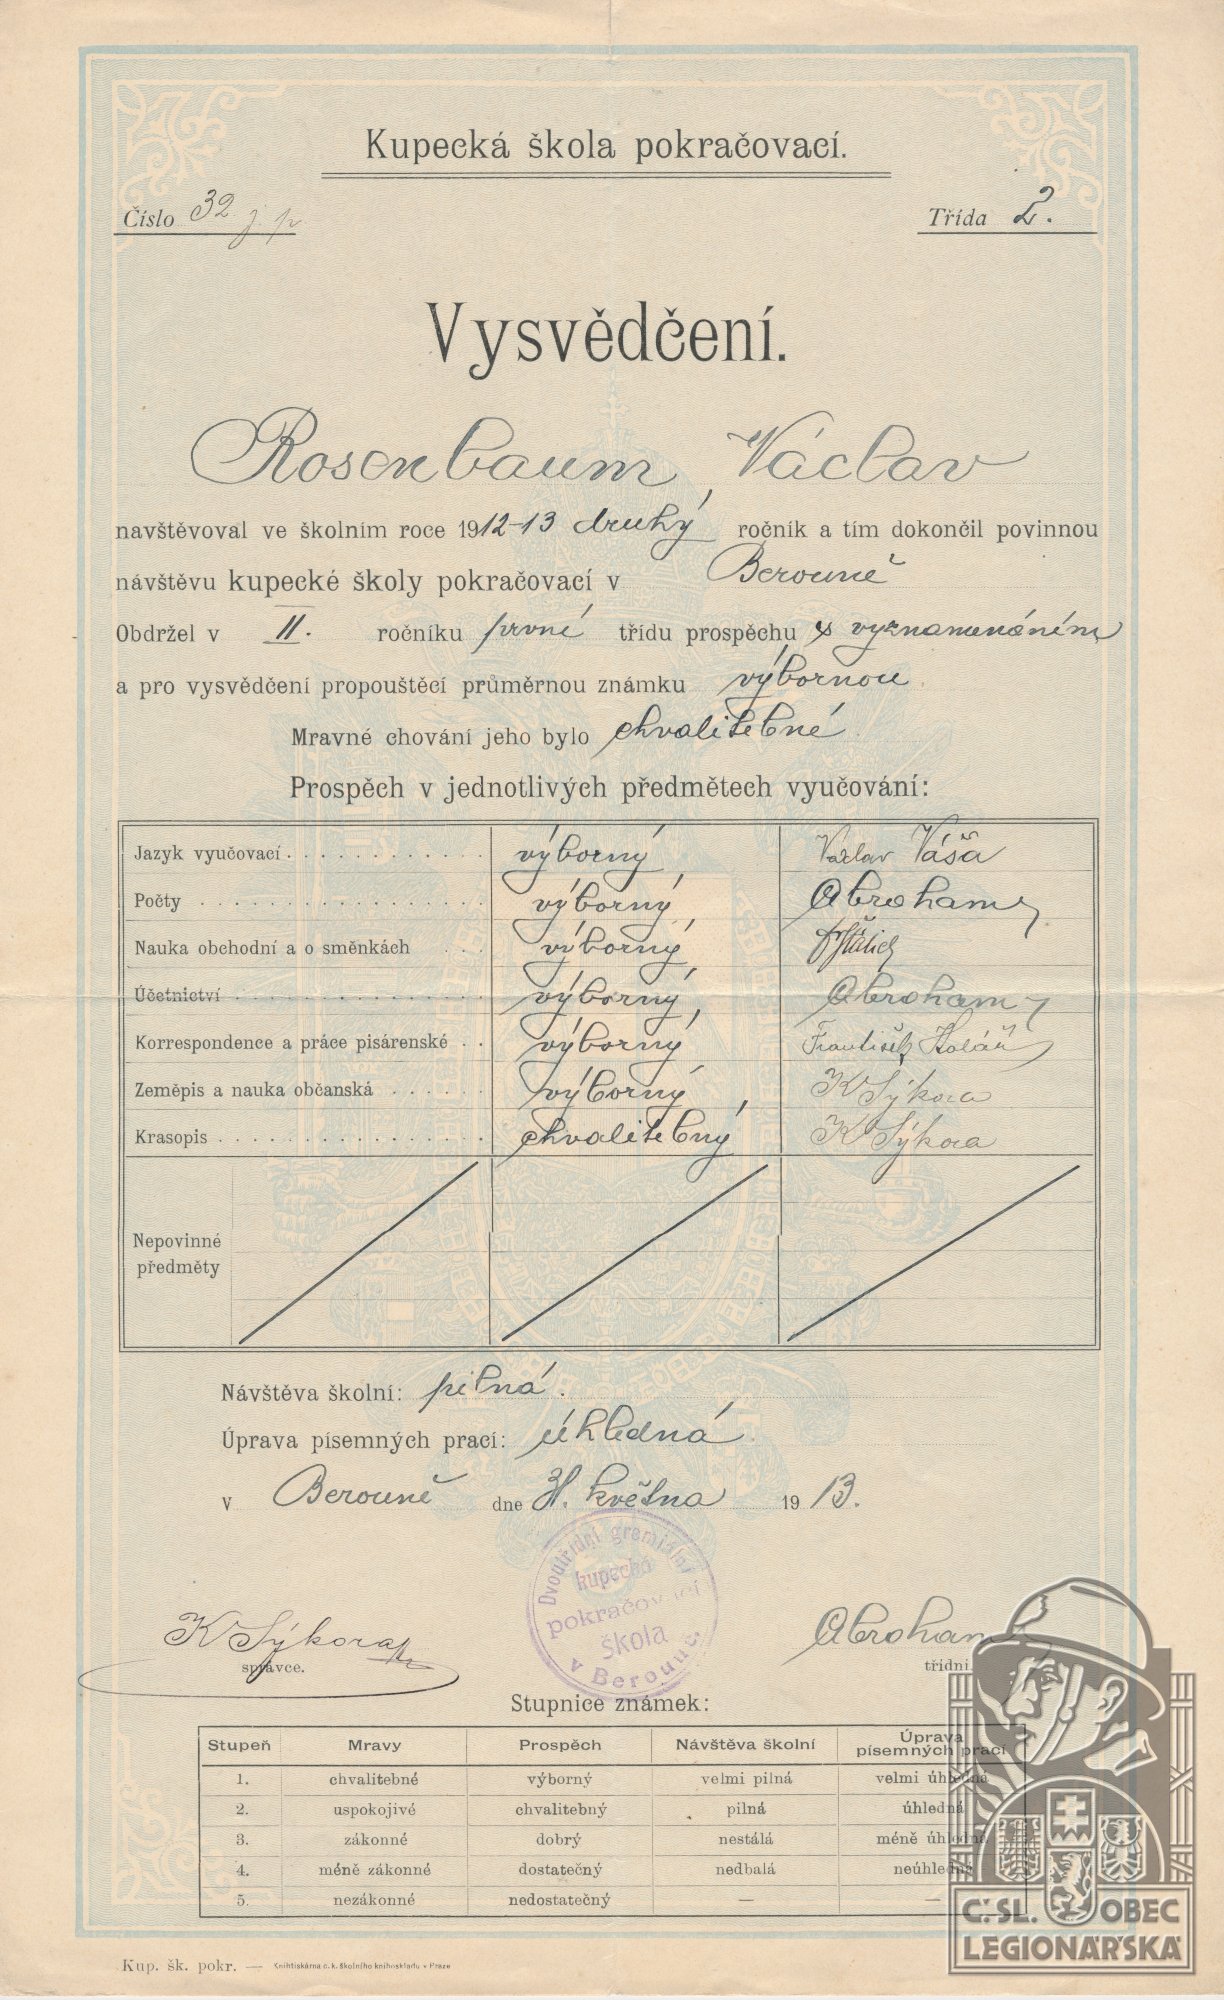 Kupecká škola pokračovací.
Číslo 32 j. p.
Třída 2.
Vysvědčení.
Rosenbaum Václav
navštěvoval ve školním roce 1912-13 druhý ročník a tím dokončil povinnou
návštěvu kupecké školy pokračovací v Berouně
Obdržel v II. ročníku prvné třídu prospěchu s vyznamenáním
a pro vysvědčení propouštěcí průměrnou známku výbornou
Mravné chování jeho bylo chvalitebné
Prospěch v jednotlivých předmětech vyučování:
Jazyk vyučovací výborný Václav Váša
Počty výborný Abroham
Nauka obchodní a o směnkách výborný
Účetnictví výborný Abroham
Korrespondence a práce pisárenské výborný František Kolář
Zeměpis a nauka občanská výborný K Sýkora
Krasopis chvalitebný K Sýkora
Nepovinné
předměty
Návštěva školní: pilná.
Úprava písemných prací: úhledná
v Berouně dne 31. května 1913.
Dvoutřídní gremialní
kupecká
pokračovací
škola
v Berouně.
K Sýkora
správce.
Abroham
třídní
Stupnice známek:
Stupeň Mravy Prospěch Návštěva školní Úprava písemných prací
1. chvalitebné výborný velmi pilná velmi úhledná
2. uspokojivé chvalitebný pilná úhledná
3. zákonné dobrý nestálá méně úhledná
4. méně zákonné dostatečný nedbalá neúhledná
5. nezákonné nedostatečný — —
Kup. šk. pokr. — Knihtiskárna c. k. školního knihoskladu v Praze
Č. SL. OBEC
LEGIONÁŘSKÁ